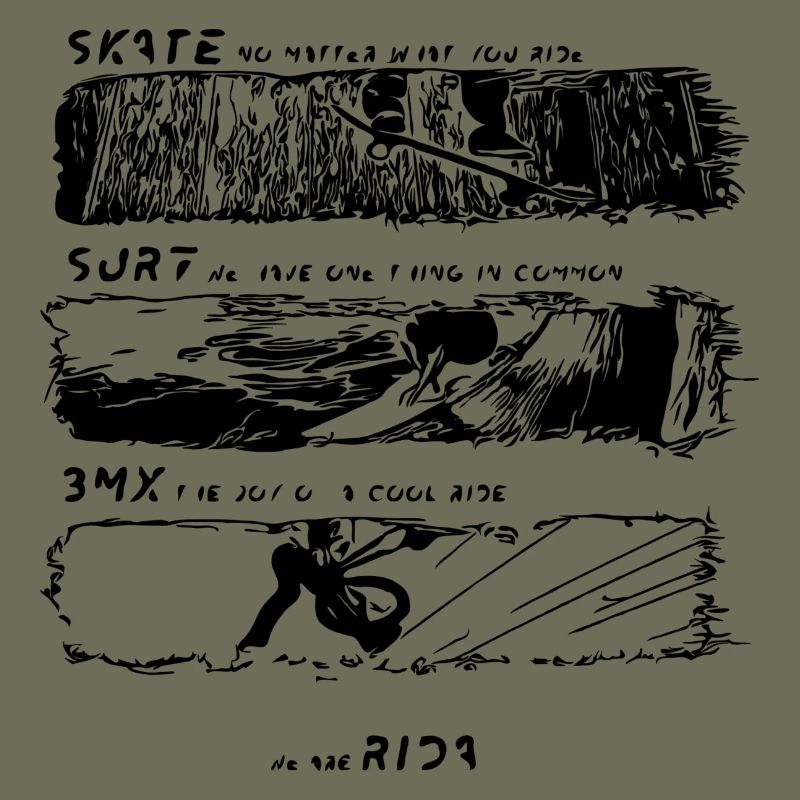 SKATE NO MATTER WHAT YOU RIDE
SURF WE HAVE ONE THING IN COMMON
BMX THE JOY OF A COOL RIDE
WE ARE RIDA